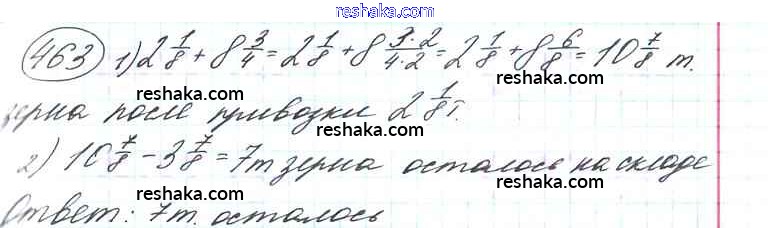 reshaka.com
463 1) 2 1/8 + 8 3/4 = 2 1/8 + 8 3·2/4·2 = 2 1/8 + 8 6/8 = 10 7/8 т.
reshaka.com reshaka.com
зерна после привозки 2 1/8 т.
reshaka.com
2) 10 7/8 - 3 7/8 = 7 т зерна осталось на складе
reshaka.com reshaka.com
Ответ: 7 т. осталось
reshaka.com